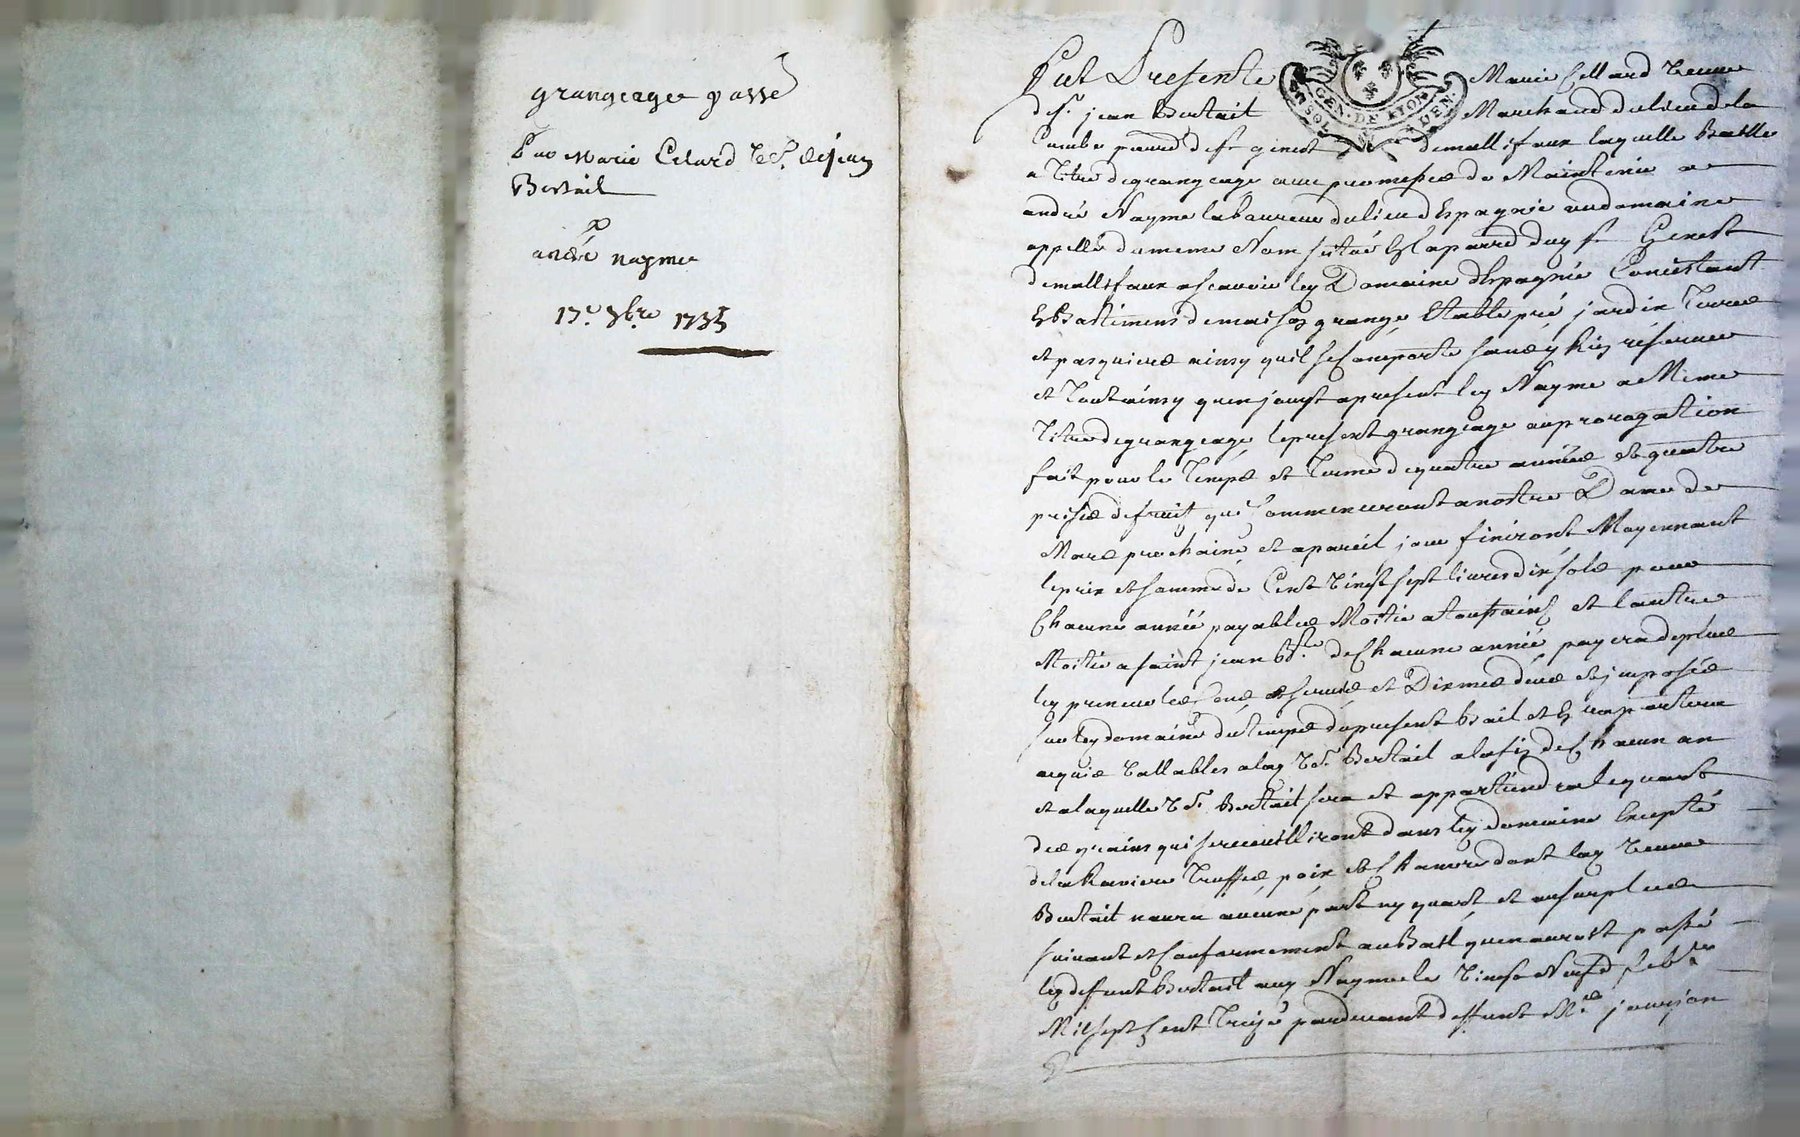 grangeage passé
Par Marie Celard vefe. de jean
Bertail
a
andré nayme
17e 8bre 1735
Fut Presente Marie Cellard veuve
de sr. jean Bertail Marchand du lieu de la
Combe parred de st genest demallifaux laquelle Baille
a titre de grangeage avec promesse de Maintenir a
andré Nayme laboureur du lieu despagnie au domaine
appellé du meme Nom situé En la parred duy st Genest
demallifaux ascavoir ley Domaine despagnie Concistant
En Bastimens de maison grange Etable pré jardin Terres
et pasquieres ainsy quil se Comporte sans y Rien réserver
et Tout ainsy quen jouyt apresent ley Nayme a Meme
titre de grangeage, le present grangeage ou prorogation
fait pour le Temps et Terme de quatre années et quatre
prises de fruit qui Commenceront a nostre Dame de
Mars prochaine et a pareil jour finiront Moyennant
le prix et somme de Cent vinst sept livres dix sols pour
Chacune année payables Moitié a Toussaint et lautre
Moitié a saint jean Bte. de Chacune année, payera de plus
ley preneur les Cens et servis et Dixmes deus et imposés
sur ley domaine du temps du present bail et En raportera
aquis vallables a lay ve. Bertail a la fin de Chacun an
et a laquelle ve. Bertail sera et appartiendra le quart
des grains qui se recueilliront dans ley domaine Excepté
de la Raviere Truffes, poix et Chanvre dont lay veuve
Bertail naura aucune part ny quart et au surplus
suivant et Conformement au Bail quen auroit passé
ley deffunt Bertail auy Nayme le vinst Neuf febr
Mil sept Cent Treize pardevant deffunt Me jourjon